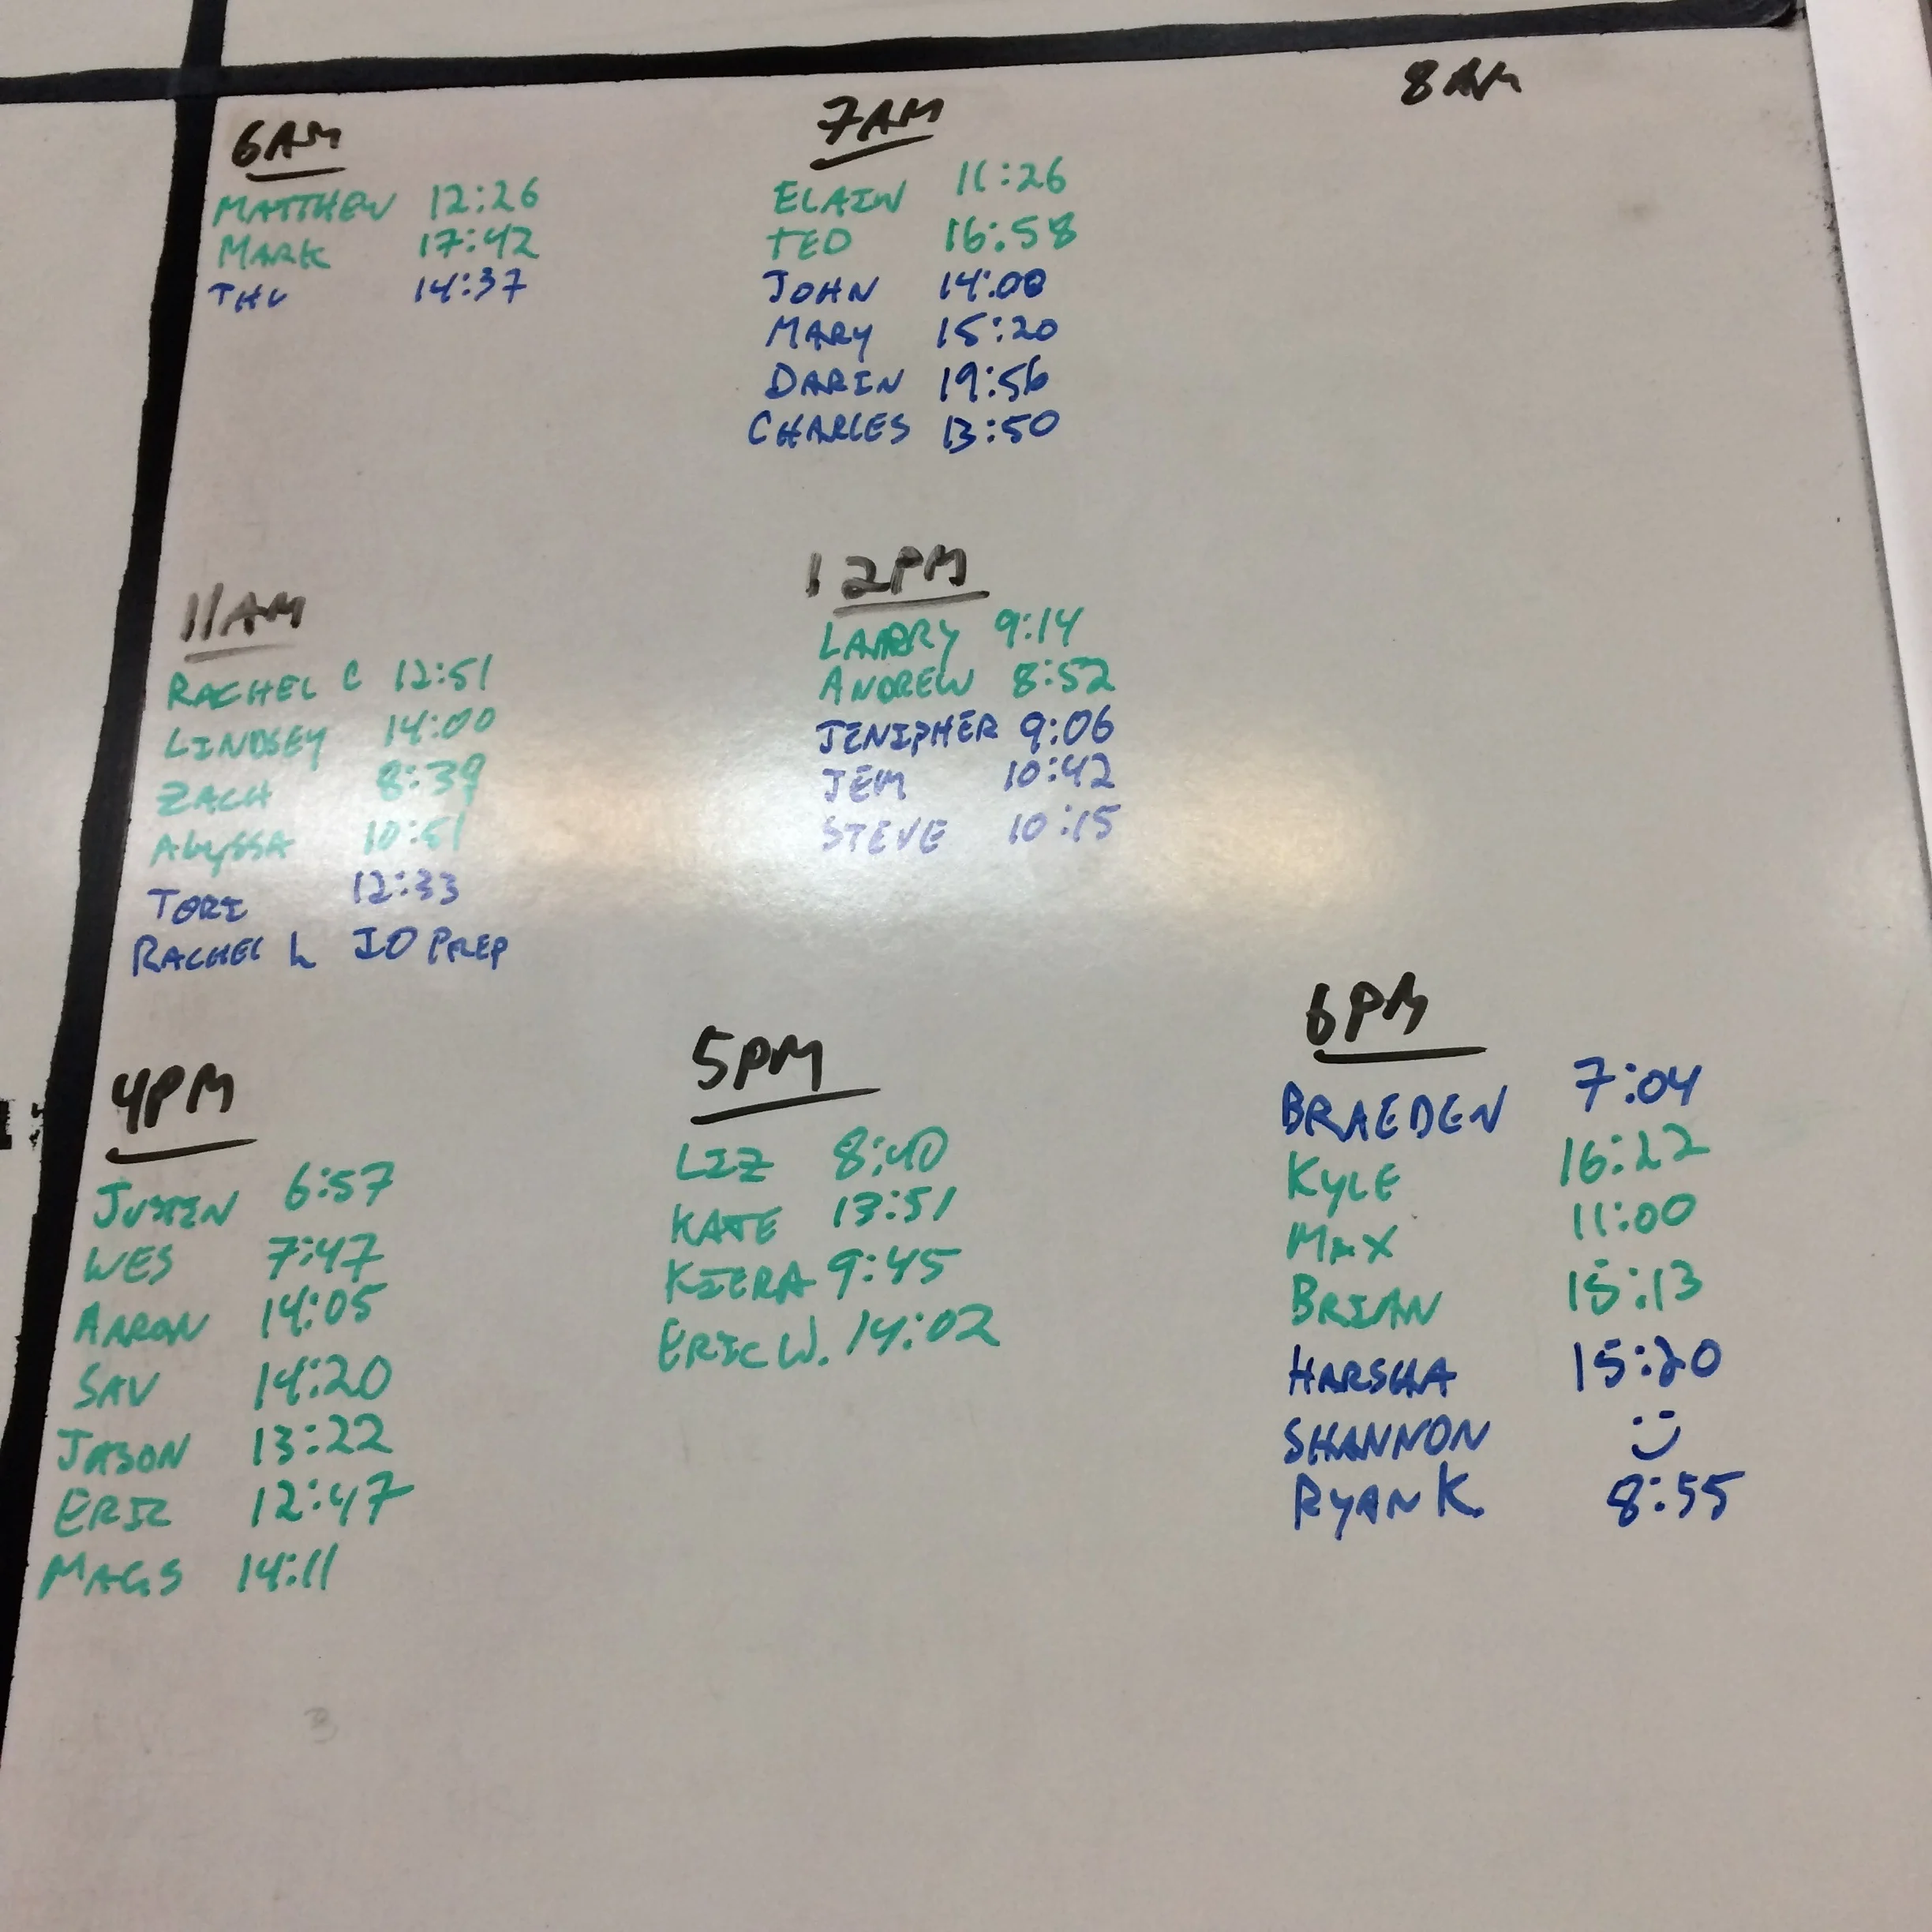 6AM
MATTHEW 12:26
MARK 17:42
THU 14:37
7AM
ELAIN 11:26
TED 16:58
JOHN 14:00
MARY 15:20
DARIN 19:56
CHARLES 13:50
8AM
11AM
RACHEL C 12:51
LINDSEY 14:00
ZACH 8:39
ALYSSA 10:51
TORI 12:33
RACHEL L IO PREP
12PM
LARRY 9:14
ANDREW 8:52
JENIPHER 9:06
JEM 10:42
STEVE 10:15
4PM
JUSTIN 6:57
WES 7:47
AARON 14:05
SAV 14:20
JASON 13:22
ERIC 12:47
MAGS 14:11
5PM
LIZ 8:40
KATE 13:51
KIERA 9:45
ERIC W. 14:02
6PM
BRAEDEN 7:04
KYLE 16:22
MAX 11:00
BRIAN 15:13
HARSHA 15:20
SHANNON
RYAN K. 8:55